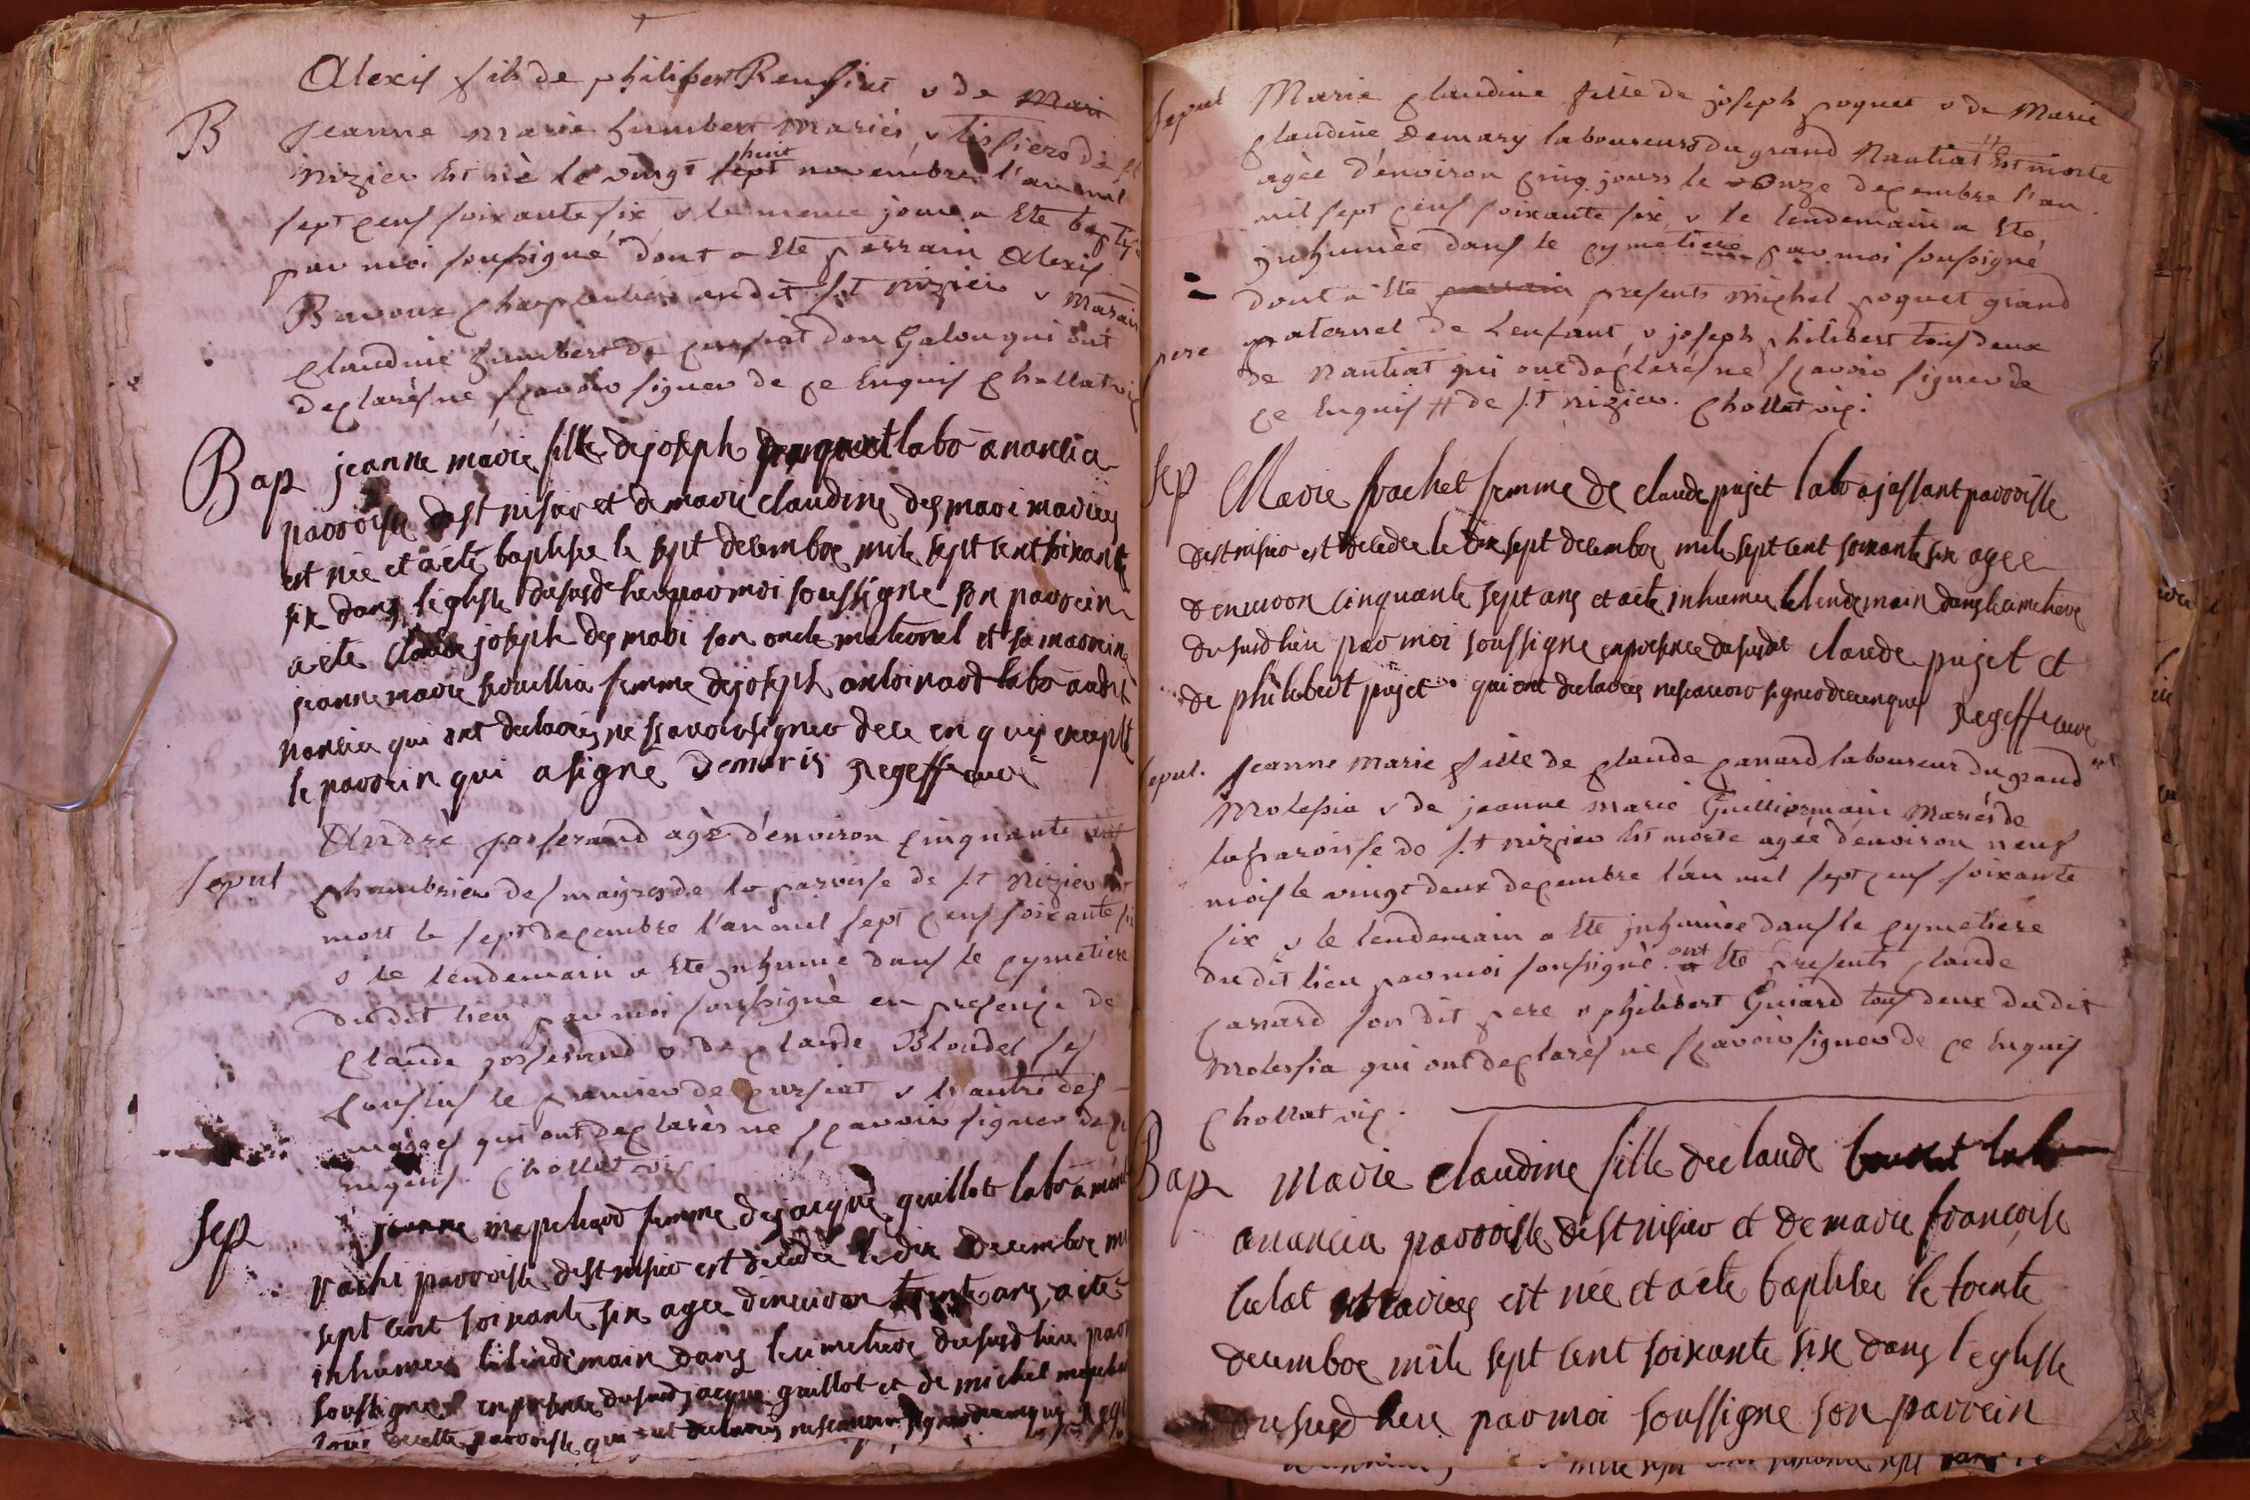 Alexis fils de philibert Renfiat & de Mari
B
jeanne marie humbert mariés, tissiers de st
nizier Est né le vingt sept huit novembre l'an mil
sept cens soixante six & le meme jour a Eté baptisé
par moi soussigné dont a Eté parrain Alexis
Bavoux charpentier audit St nizier & Marain
claudine humbert de qui ont
declarés ne sçavoir signer de ce Enquis Chollat vic
Bap jeanne marie fille de joseph labo a nancia
parroisse de st nisier et de marie claudine desmari mariez
est née et a été baptisée le sept decembre mile sept cent soixante
six dans l'eglise du susd lieu par moi soussigné son parrein
a eté claude joseph desmari son oncle maternel et sa marreine
jeanne marie femme de joseph labo audit
nancia qui ont declarez ne sçavoir signer de ce enquis excepté
le parrein qui a signé Demaris regeffe curé
André josserand agè d'environ cinquante
sepul
chambrier des maigres de la paroisse de s.t Nizier Est
mort le sept decembre l'an mil sept cens soixante six
& le lendemain a Ete inhumé dans le cymetiere
dudit lieu par moi soussigné en presence de
claude josserand & de claude Blondel ses
cousins le premier de cursiat & l'autre des
maigres qui ont declarés ne sçavoir signer de ce
enquis. Chollat vic
Sep
jeanne femme de jacque guillot labo a
parroisse de st nisier est decedée le dix decembre mil
sept cent soixante six agee d'environ trente ans, a ete
inhumee le lendemain dans le cimetiere du susd lieu par
soussigné en presence du susd jacque guillot et de michel
de cette parroisse qui ont declarez ne scavoir signer de ce enquis
sepul Marie claudine fille de joseph poquet & de Marie
claudine Demary laboureurs du grand Nantiat # Est morte
agée d'environ cinq jours le onze decembre l'an
mil sept cens soixante six & le lendemain a Eté
inhumée dans le cymetiere par moi soussigné
dont a Eté parrain presents michel poquet grand
pere paternel de L'enfant, & joseph philibert tous deux
de Nantiat qui ont declarés ne sçavoir signer de
ce Enquis # de s.t nizier. Chollat vic.
Sep Marie frachet femme de claude pujet labo a jassant parroisse
de st nisier est decedee le dix sept decembre mile sept cent soixante six agee
d'environ cinquante sept ans et a ete inhumee le lendemain dans le cimetiere
du susd lieu par moi soussigne en presence du susdit claude pujet et
de philibert pujet qui ont declarez ne scavoir signer de ce enquis regeffe curé
sepul. Jeanne Marie fille de claude canard laboureur du grand
Molessia & de jeanne marie Guilliermain Mariés de
la paroisse de s.t nizier Est morte agée d'environ neuf
mois le vingt deux decembre l'an mil sept cens soixante
six & le lendemain a Eté inhumée dans le cymetiere
du dit lieu par moi soussigné. ont Eté presents claude
canard son dit pere & philibert Guiard tous deux du dit
Molessia qui ont declarés ne sçavoir signer de ce Enquis
Chollat vic.
Bap Marie claudine fille de claude labo
a nancia parroisse de st nisier et de marie françoise
mariez est née et a eté baptisee le trente
decembre mile sept cent soixante sise dans l'eglise
du susd lieu par moi soussigne son parrein
mile sept cent soixante sept dans le